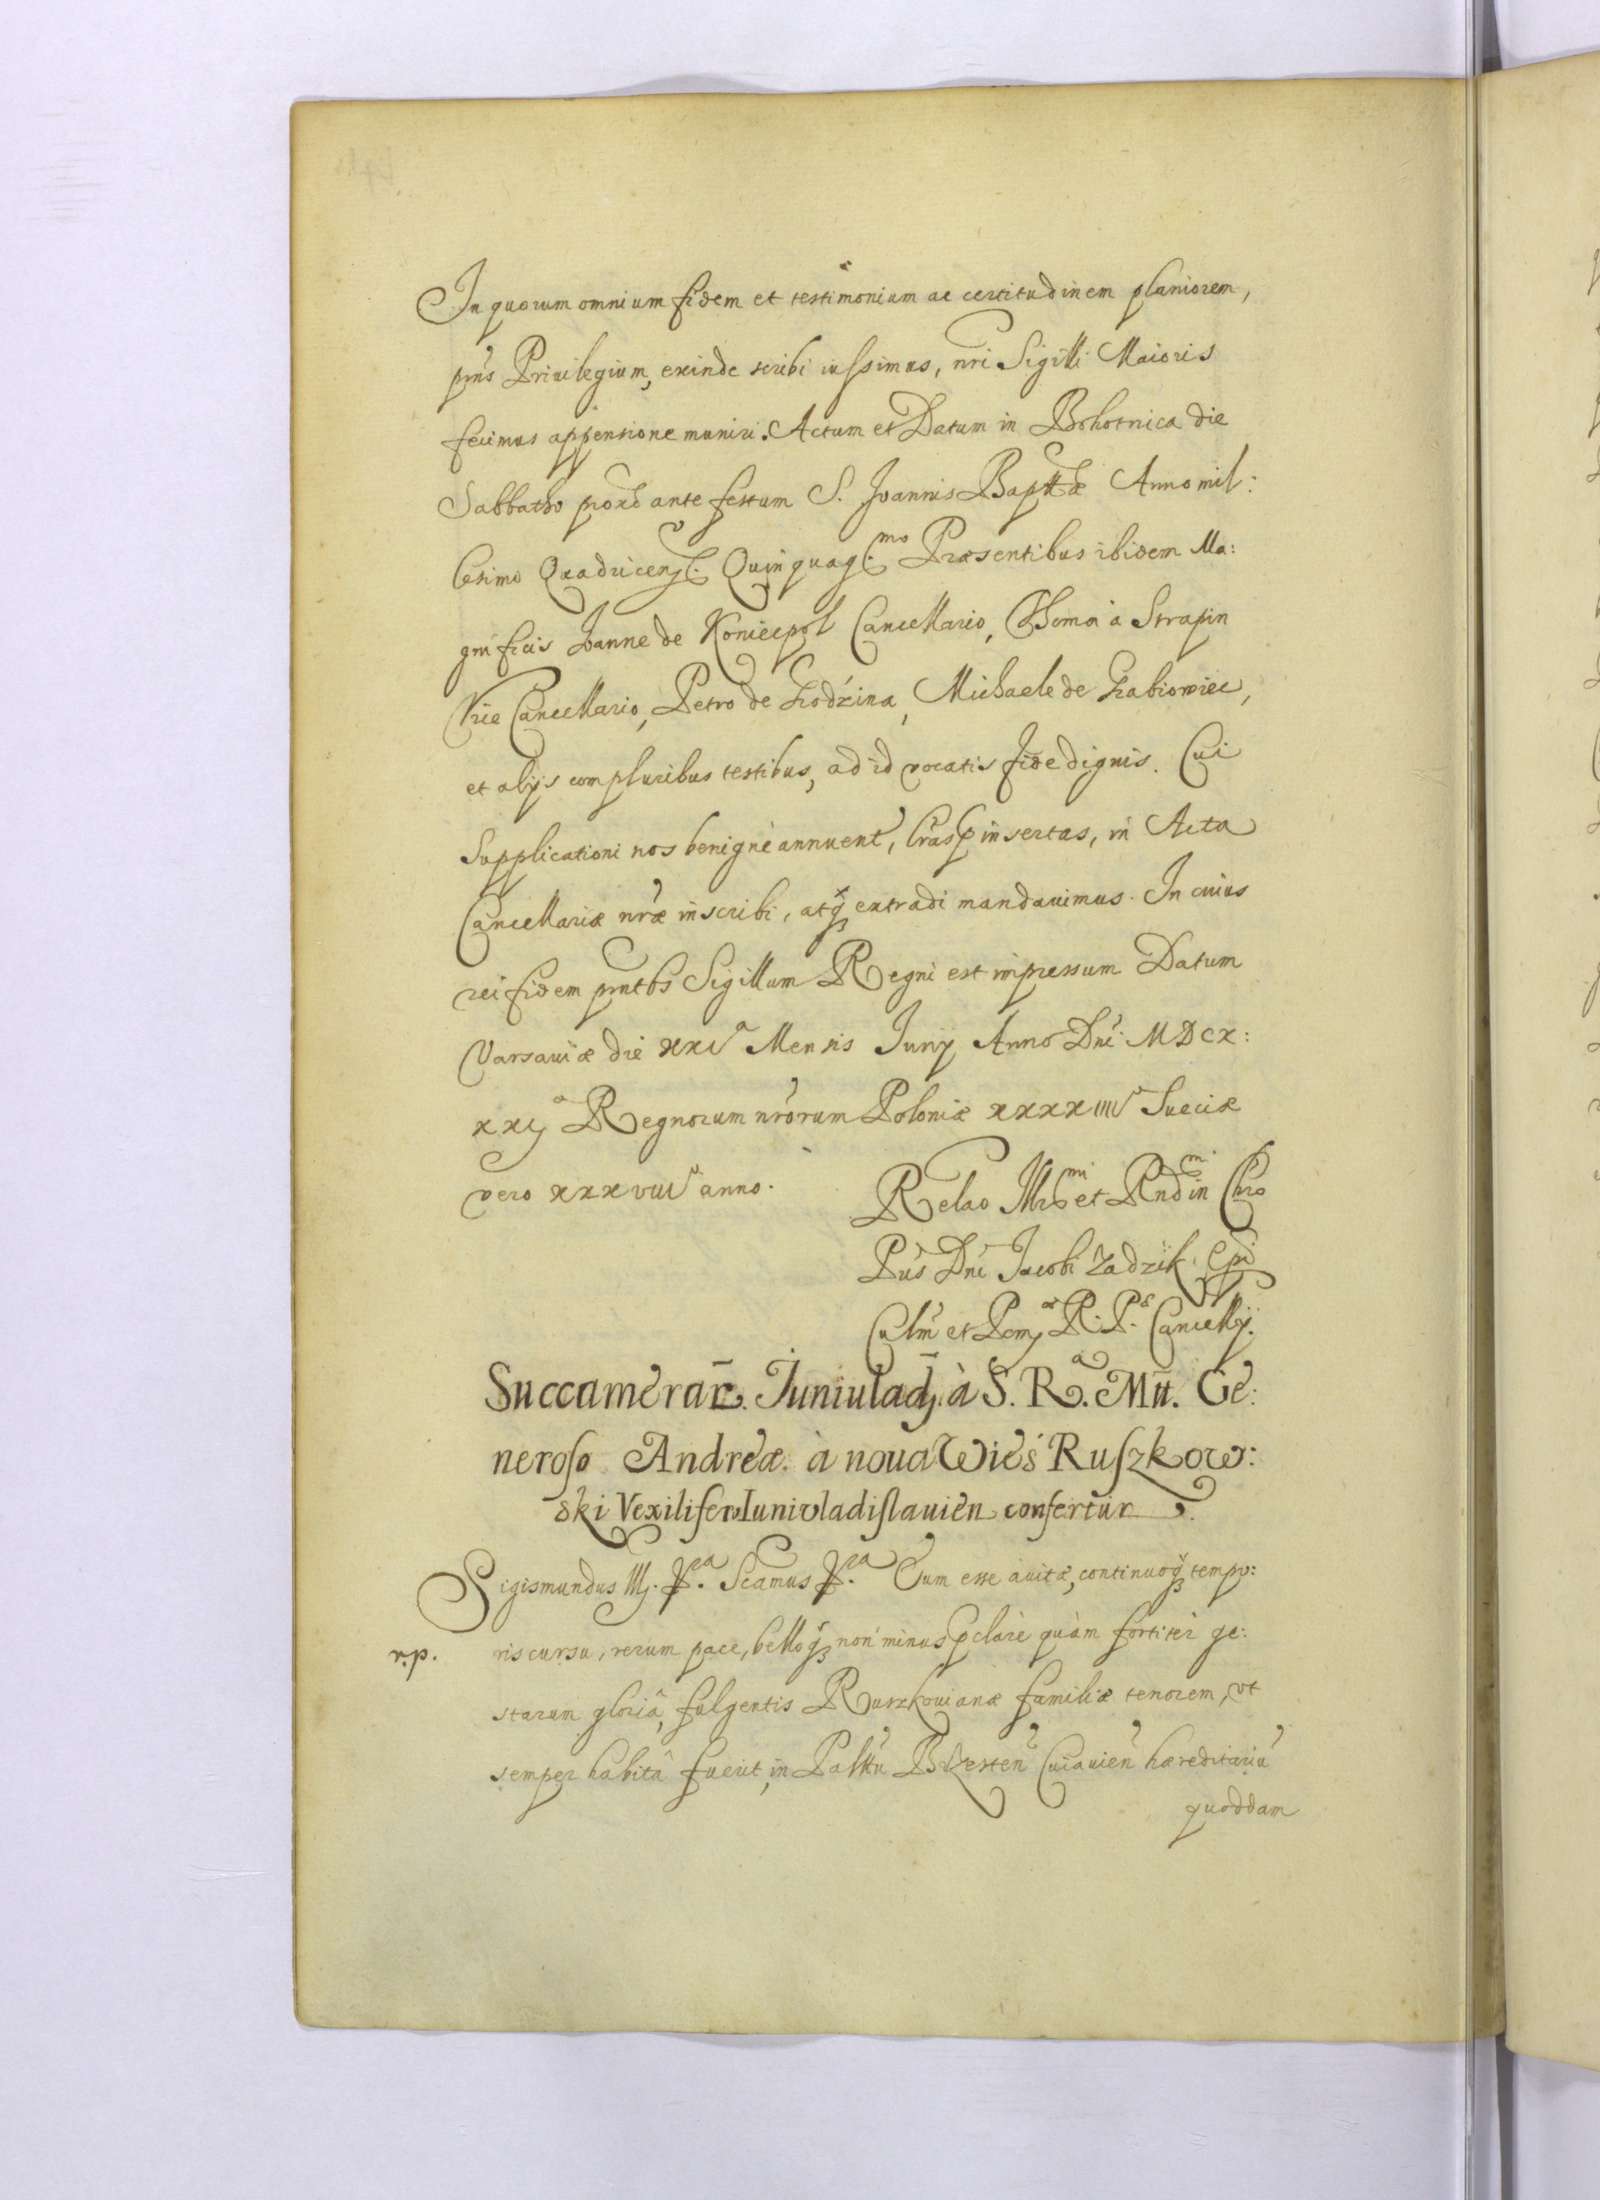 In quorum omnium fidem et testimonium ac certitudinem planiorem,
pñs Priuilegium, exinde scribi iussimus, nri Sigilli Maioris
fecimus appensione muniri. Actum et Datum in Bohotnica die
Sabbatho prox: ante festum S. Joannis Baptæ Anno mil:
lesimo Quadricen. Quinquag.mo Præsentibus ibidem Ma:
gnificis Joanne de Koniecpol Cancellario, Thoma à Strapin
Vice Cancellario, Petro de Hodzina, Michaele de Habiowiec,
et alijs compluribus testibus, ad id vocatis fide dignis. Cui
Supplicationi nos benignè annuent, lras insertas, in Acta
Cancellariæ nræ inscribi, atq3 extradi mandauimus. In cuius
rei fidem pntbs Sigillum Regni est impressum Datum
Varsauiæ die Mensis Iunij Anno Dni MDCX:
xxij Regnorum nrorum Poloniæ xxxxiiii Sueciæ
vero xxxviiii anno.
Relao Illrmi et Rndmi in Chro
Pris Dni Jacobi Zadzik. Epi
Culm et Pom R. P. Cancellrij.
Succamerar. Iuniulad. à S. R.a Mtt. Ge:
neroso Andreæ à noua Wieś Ruszkow:
ski Vexilifero Iuniuladislauien confertur.
Sigismundus III. Pra. Scamus Pra. Cum esse auitæ, continuoq3 tempo:
r.p. ris cursu, rerum pace, belloq3 non minus pclarè quàm fortiter ge:
starum gloriâ, fulgentis Ruszkouianæ familiæ tenorem, vt
semper habita fuerit, in Palttu Brzesten Cuiauien hæreditariũ
quoddam